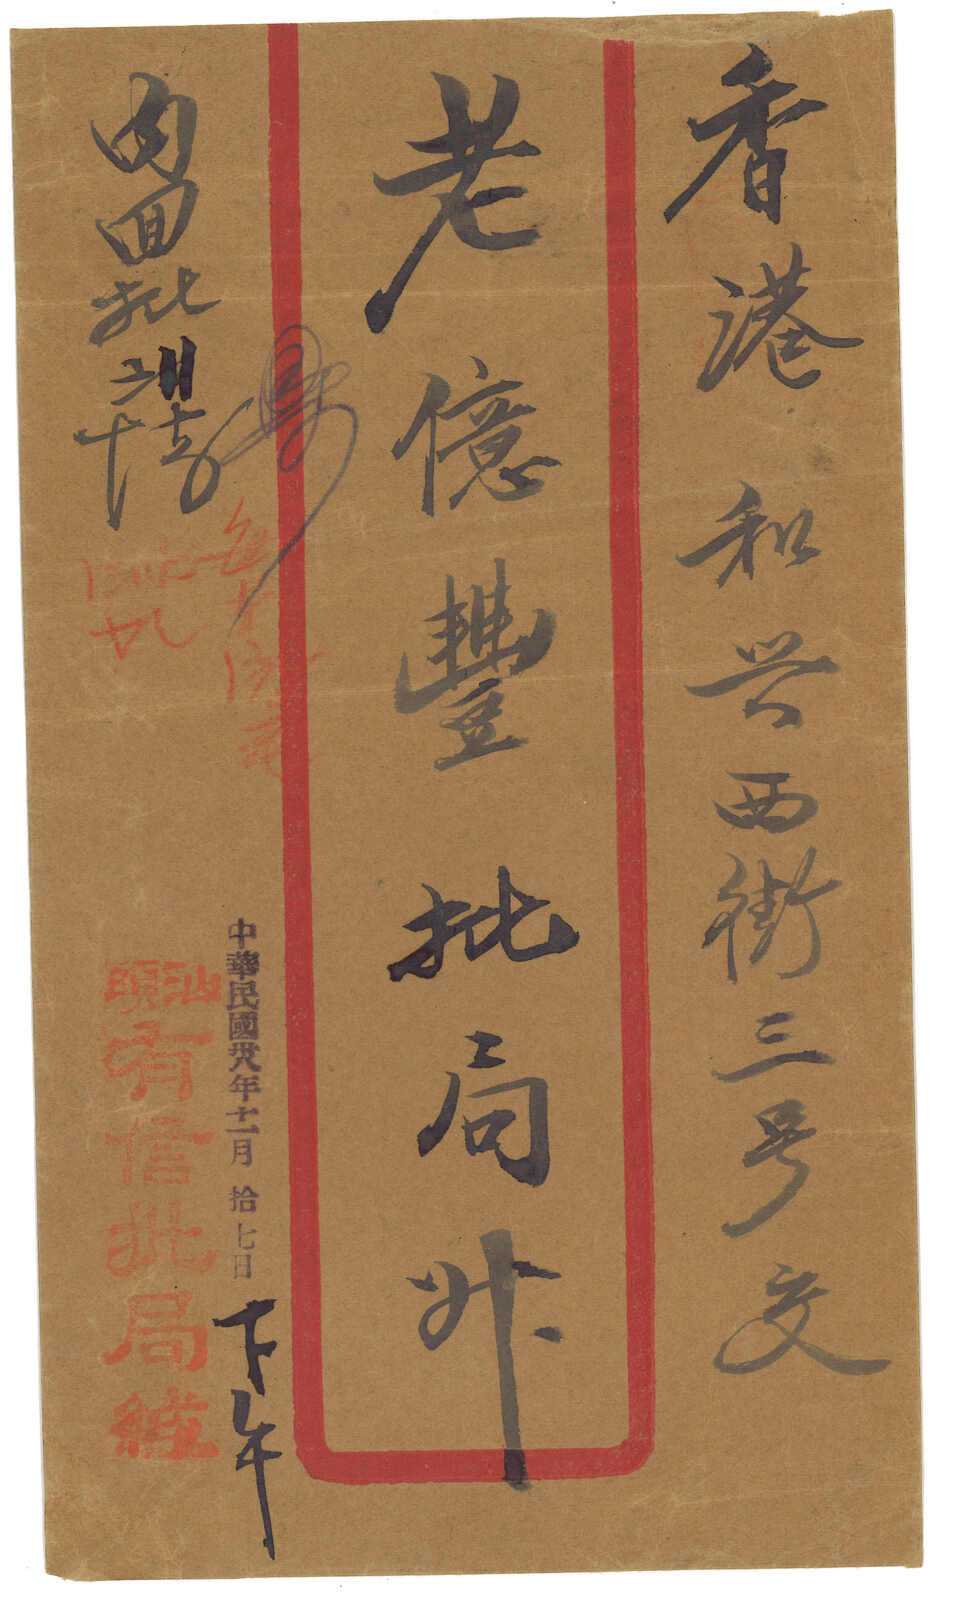 香港和兴西街三号交
老億豐批局升
中華民國卅八年十一月拾七日下午
内回批
汕頭有信批局緘